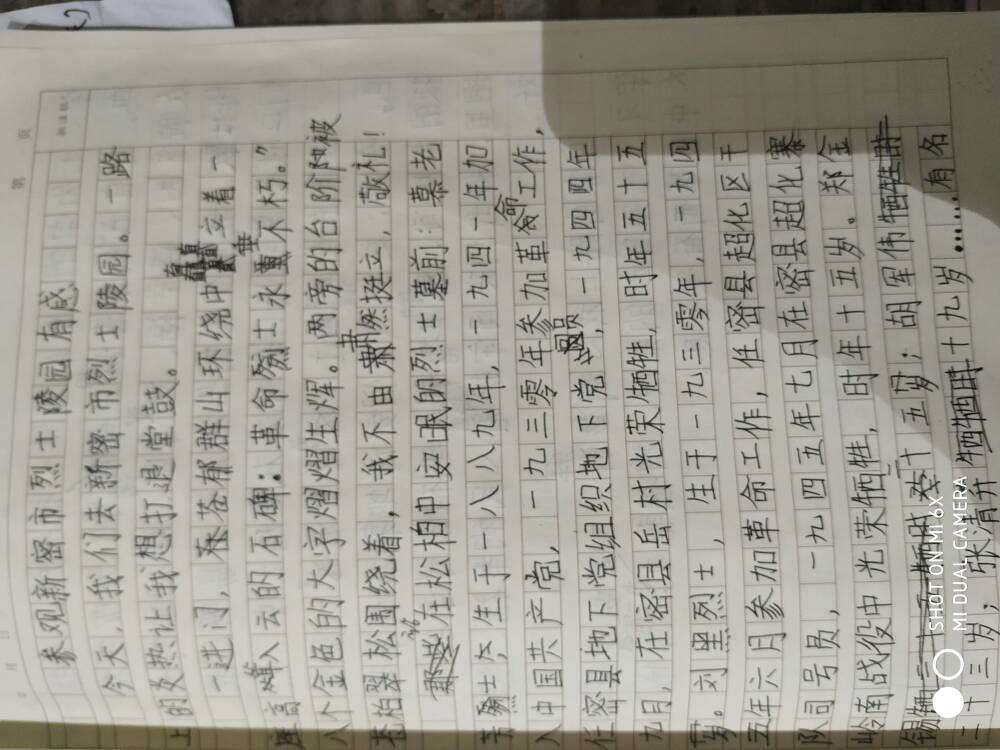 参观新密市烈士陵园有感
今天，我们去新密市烈士陵园。一路
上的炎热让我想打退堂鼓。
一进门，在苍郁群山环绕中矗立着一
座高耸入云的石碑：革命烈士永垂不朽。”
八个金色的大字熠熠生辉。两旁的台阶被
苍松翠柏围绕着，我不由肃然挺立，敬礼！
在松柏中安眠的烈士墓前，慕老
烈士，生于一八八九年，一九四一年加
入中国共产党，一九三零年参加革命工作，
任密县地下党组织地下党员，一九四四年
九月，在密县岳村光荣牺牲，时年五十五
岁。刘黑烈士，生于一九三零年，一九四
五年六月参加革命工作，任密县超化区干
队司号员，一九四五年七月在密县超化寨
岭南战役中光荣牺牲，时年十五岁。郑金
锡牺二十五岁；胡军伟牺牲时
二十三岁；张清升牺牲时十九岁……有名
SHOT ON MI 6X
MI DUAL CAMERA